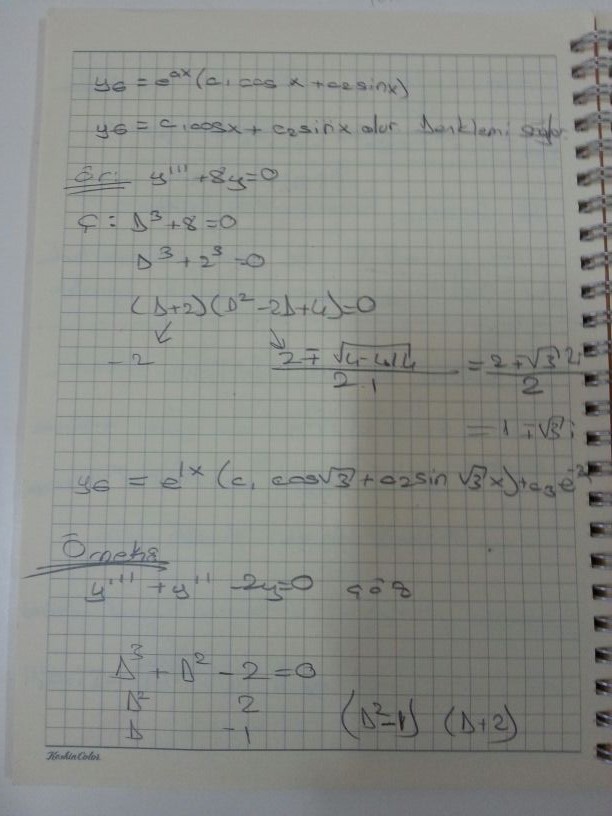 yG = e^ax (c₁ cos x + c₂ sinx)
yG = c₁ cosx + c₂ sinx olur Denklemi sağlar.
Ör: y''' + 8y = 0
Ç: D³ + 8 = 0
D³ + 2³ = 0
(D+2)(D² - 2D + 4) = 0
-2 (2 ∓ √(4-4.1.4))/(2.1) = (2 ∓ √3 2i)/2
= 1 ∓ √3 i
yG = e^1x (c₁ cos√3 + c₂ sin √3 x) + c₃ e^-2x
Örnek:
y''' + y'' - 2y = 0 çöz
D³ + D² - 2 = 0
D² 2
D -1 (D²-1) (D+2)
KeskinColor